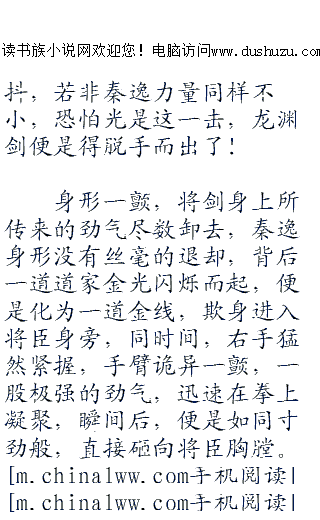 读书族小说网欢迎您！电脑访问www.dushuzu.com
抖，若非秦逸力量同样不
小，恐怕光是这一击，龙渊
剑便是得脱手而出了！
身形一颤，将剑身上所
传来的劲气尽数卸去，秦逸
身形没有丝毫的退却，背后
一道道家金光闪烁而起，便
是化为一道金线，欺身进入
将臣身旁，同时间，右手猛
然紧握，手臂诡异一颤，一
股极强的劲气，迅速在拳上
凝聚，瞬间后，便是如同寸
劲般，直接砸向将臣胸膛。
[m.chinalww.com手机阅读|
[m.chinalww.com手机阅读|